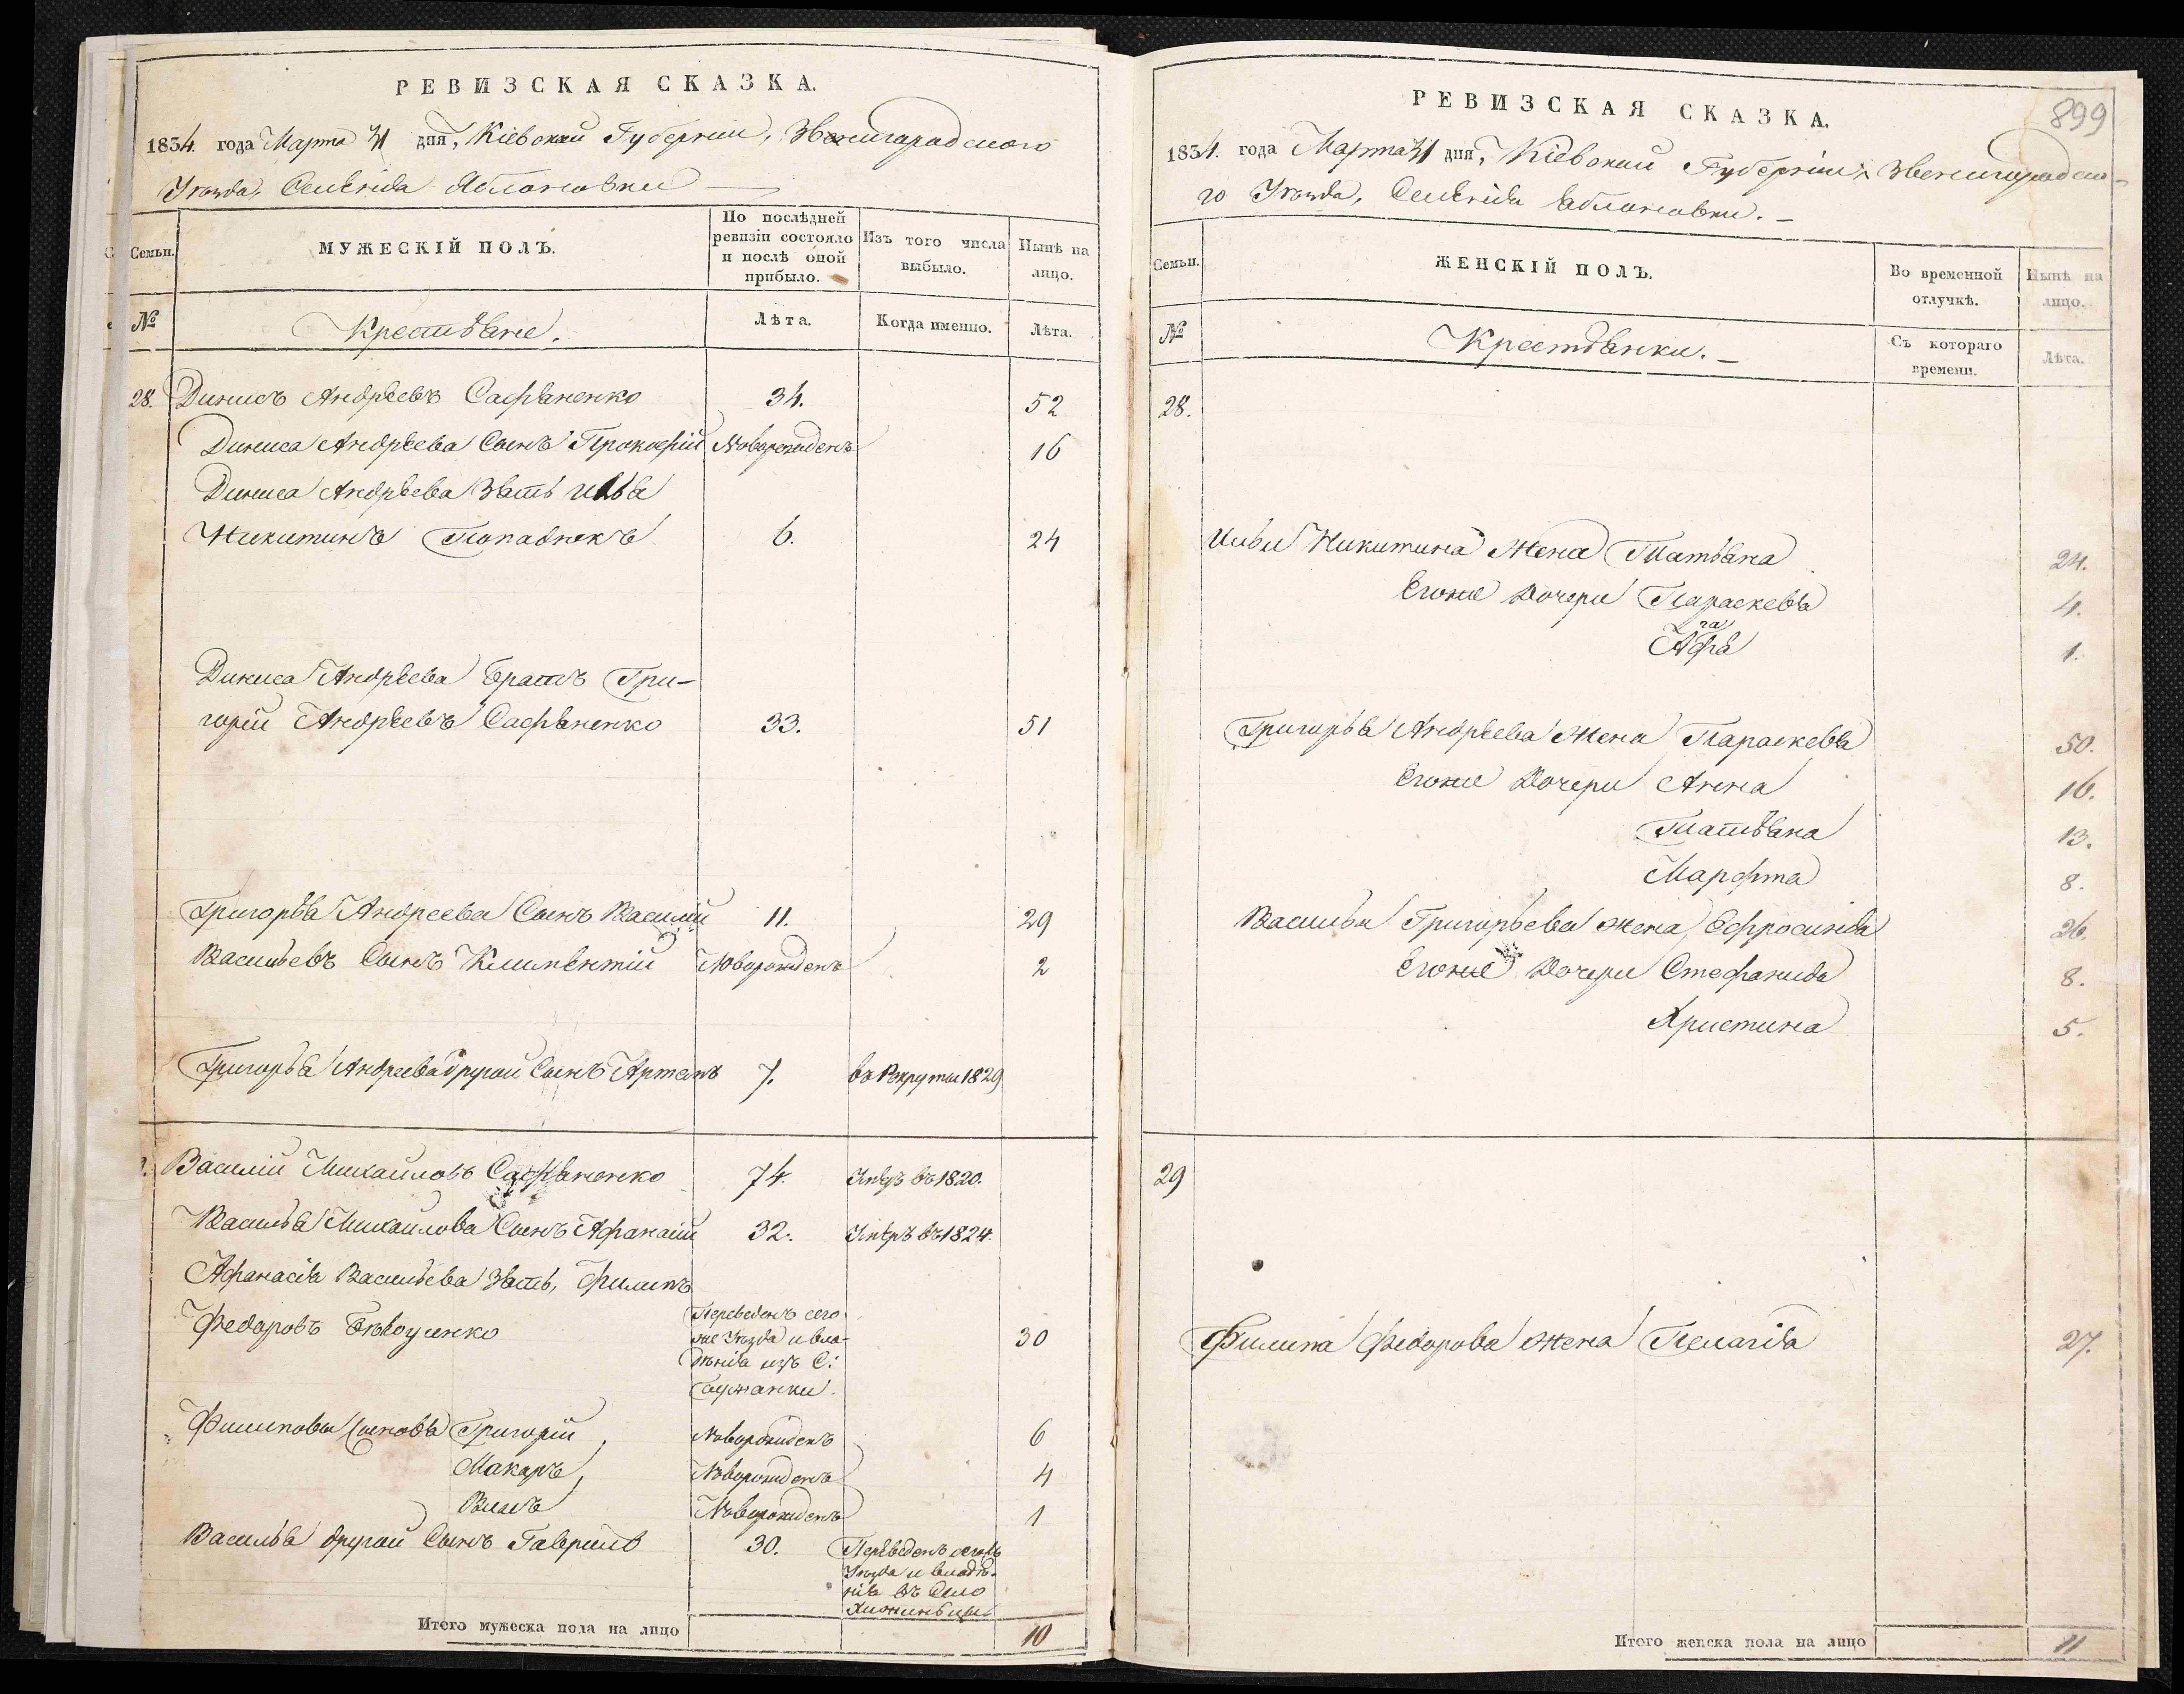 РЕВИЗСКАЯ СКАЗКА.
1834. года Марта 31 дня, Кіевской Губерніи, Звенигородского
Уезда, Селенія Яблоновки
Семьи.
МУЖЕСКІЙ ПОЛЪ.
По послѣдней ревизіи состояло и послѣ оной прибыло.
Изъ того числа выбыло.
Нынѣ на лицо.
№
Крестьяне.
Лѣта.
Когда именно.
Лѣта.
28. Динисъ Андреевъ Сафяненко 34. 52
Диниса Андреева Сынъ Прокофій Новорожденъ 16
Диниса Андреева Зять Илья
Никитинъ 6. 24
Диниса Андреева Братъ Гри-
горій Андреевъ Сафяненко 33. 51
Григорья Андреева Сынъ Василій 11. 29
Васильевъ Сынъ Климентій Новорожденъ 2
Григорья Андреева другой Сынъ Артемъ 7. въ Рекруты 1829
Василій Михайловъ Сафяненко 74. Умеръ въ 1820.
Василья Михайлова Сынъ Афанасій 32. Умеръ въ 1824.
Афанасія Васильева Зять, Филипъ
Федоровъ 30
Переведенъ сего
же Уезда и вла-
дѣнія изъ С:
Филиповы Сыновья Григорій Новорожденъ 6
Макаръ, Новорожденъ 4
Власъ Новорожденъ 1
Василья другой Сынъ Гаврило 30. Переведенъ сегожъ
Уезда и владѣ-
нія въ Село
Итого мужеска пола на лицо 10
899
РЕВИЗСКАЯ СКАЗКА.
1834. года Марта 31 дня, Кіевской Губерніи Звенигородско-
го Уезда, Селенія Яблоновки.
Семьи.
ЖЕНСКІЙ ПОЛЪ.
Во временной отлучкѣ.
Нынѣ на лицо.
№
Крестьянки.
Съ котораго времени.
Лѣта.
28.
Ильи Никитина Жена Татьяна 24.
Егоже Дочери Параскевья 4.
Агафя 1.
Григорья Андреева Жена Параскевья 50.
Егоже Дочери Анна 16.
Татьяна 13.
Марфта 8.
Василья Григорьева жена Ефросинія 26.
Егоже Дочери Стефанида 8.
Христина 5.
29
Филипа Федорова жена Пелагія 27.
Итого женска пола на лицо 11